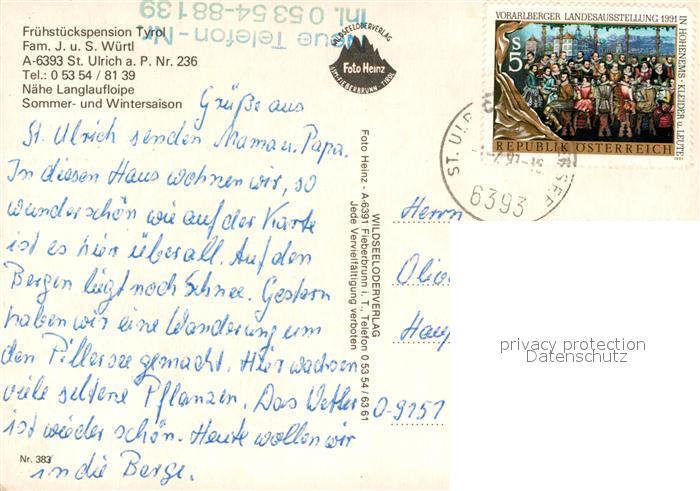 Frühstückspension Tyrol
Fam. J. u. S. Würtl
A-6393 St. Ulrich a. P. Nr. 236
Tel.: 0 53 54 / 81 39
Nähe Langlaufloipe
Sommer- und Wintersaison
Neue Telefon-Nr.
Inl. 0 53 54-88 1 39
WILDSEELODERVERLAG
Foto Heinz
FIEBERBRUNN-TIROL
VORARLBERGER LANDESAUSSTELLUNG 1991
IN HOHENEMS - KLEIDER u. LEUTE
S 5
REPUBLIK ÖSTERREICH
1991
ST. ULR
SEE
6393
Grüße aus
St. Ulrich senden Mama u. Papa.
In diesen Haus wohnen wir, so
wunderschön wie auf der Karte
ist es hier überall. Auf den
Bergen liegt noch Schnee. Gestern
haben wir eine Wanderung um
den Pillersee gemacht. Hier wachsen
viele seltene Pflanzen. Das Wetter
ist wieder schön. Heute wollen wir
in die Berge.
Nr. 383
WILDSEELODERVERLAG
Foto Heinz - A-6391 Fieberbrunn i. T., Telefon 0 53 54 / 63 61
Jede Vervielfältigung verboten
Herrn
Olive
O-9151
privacy protection
Datenschutz